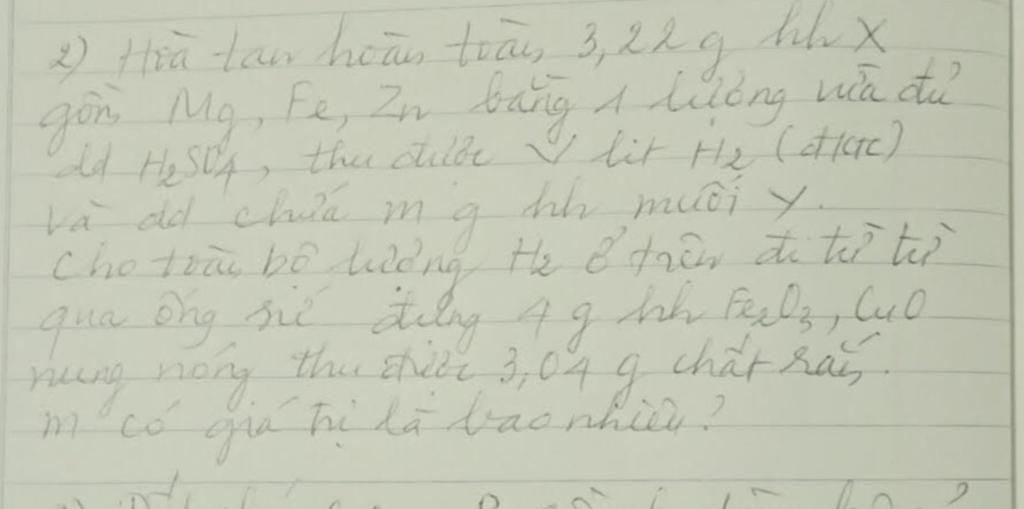 2) Hoà tan hoàn toàn 3,22 g hh X
gồm Mg, Fe, Zn bằng 1 lượng vừa đủ
dd H2SO4, thu được V lít H2 (đktc)
và dd chứa m g hh muối Y.
Cho toàn bộ lượng H2 ở trên đi từ từ
qua ống sứ đựng 4 g hh Fe2O3, CuO
nung nóng thu được 3,04 g chất rắn.
m có giá trị là bao nhiêu?